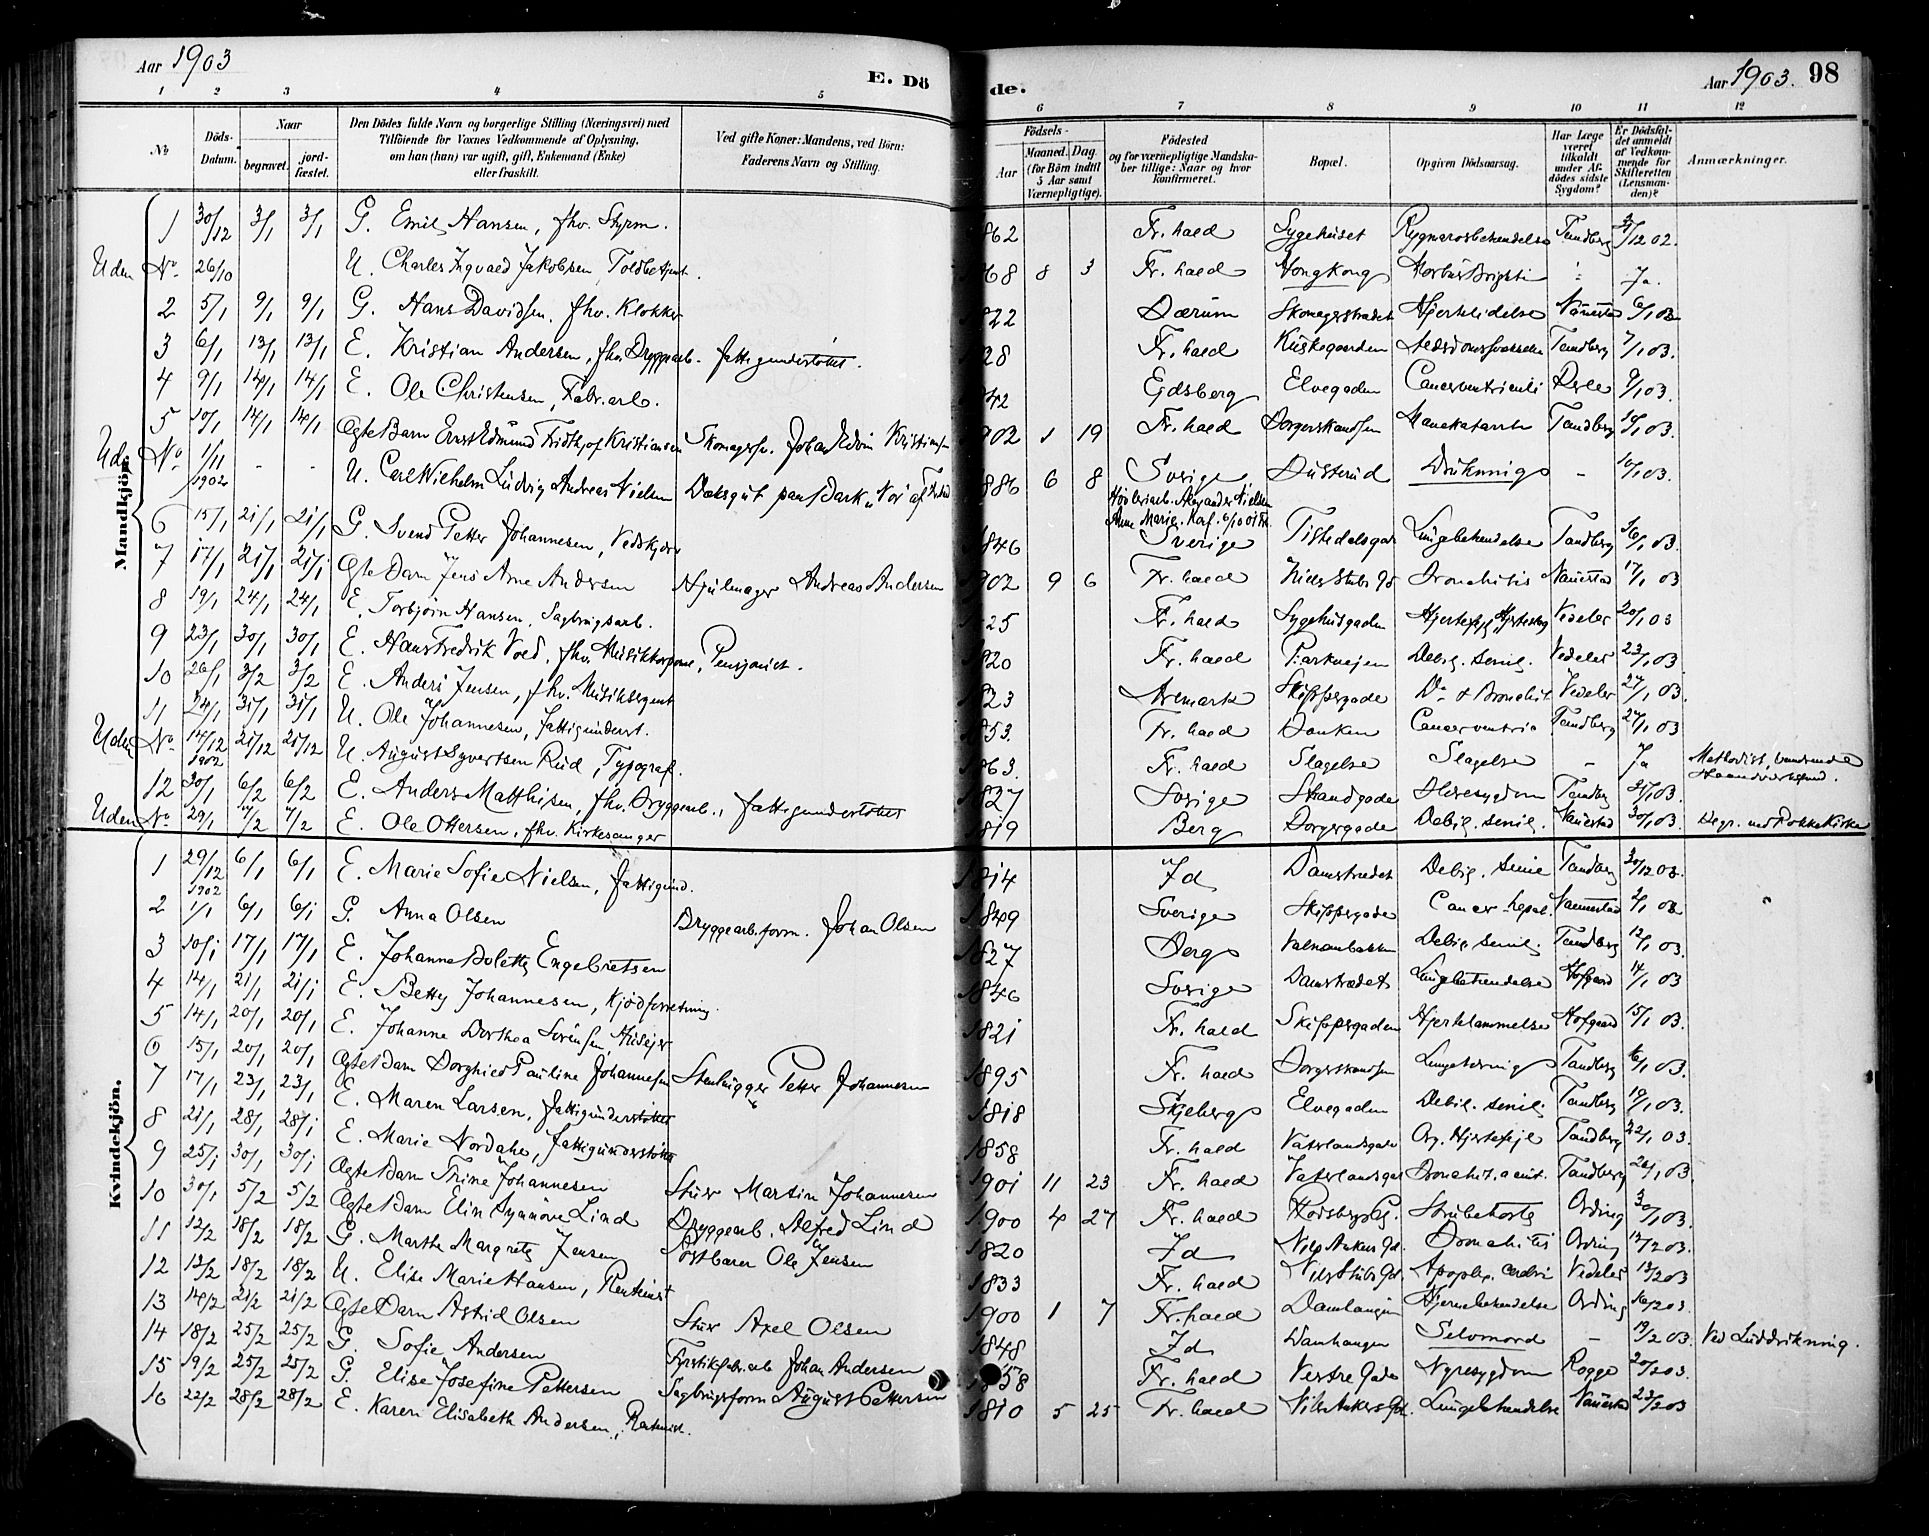 Aar 1903
E. Dö
de.
Aar 1903. 98
1 2 3 4 5 6 7 8 9 10 11 12
No
Döds-Datum.
Naar
begravet.
jord-fæstet.
Den Dödes fulde Navn og borgerlige Stilling (Næringsvei) med
Tilföiende for Voxnes Vedkommende af Oplysning,
om han (hun) var ugift, gift, Enkemand (Enke)
eller fraskilt.
Ved gifte Koner: Mandens, ved Börn:
Faderens Navn og Stilling.
Födsels-
Aar
Maaned. Dag
(for Börn indtil
5 Aar samt
Værnepligtige).
Födested
og for værnepligtige Mandska-
ber tillige: Naar og hvor
konfirmeret.
Bopæl.
Opgiven Dödsaarsag.
Har Læge
været
tilkaldt
under Af-
dödes sidste
Sygdom?
Er Dödsfal-
det anmeldt
af Vedkom-
mende for
Skifteretten
(Lensman-
den)?
Anmærkninger.
Mandkjön.
1 30/12 3/1 3/1 G. Emil Hansen, fhv. Styrm. 862 Fr.hald Sygehuset Tandberg 31/12 02.
Uden No. 26/10 U. Charles Ingvald Jakobsen, Toldbetjent. 68 8 3 Fr.hald Hongkong Ja.
2 5/1 9/1 9/1 G. Hans Davidsen, fhv. Klokker 822 Hjertelidelse 6/1 03
3 6/1 13/1 13/1 E. Kristian Andersen, fhv. Bryggearb. fattigunderstöttet. 28 Fr.hald Tandberg 7/1 03.
4 9/1 14/1 14/1 E. Ole Christensen, Fabr.arb. 42 Ejdsberg Elvegaden Cancer ventriculi 9/1 03.
5 10/1 14/1 14/1 Ægte Barn Ernst Edmund Fridthjof Kristiansen Skomagersv. Johan Edvin Kristiansen 902 1 19 Fr.hald Borgerskandsen Tandberg 10/1 03.
Uden No. 1/11 1902 - - U. Carl Wilhelm Ludvig Andreas Nielsen Dæksgut paa Bark 886 6 8 Sverige Drukning - 10/1 03.
6 15/1 21/1 21/1 G. Svend Petter Johannesen, Vedskjærer 846 Sverige Tistedalsgad Lungebetændelse Tandberg 16/1 03.
7 17/1 21/1 21/1 Ægte Barn Jens Arne Andersen Hjulmager Andreas Andersen 1902 9 6 Fr.hald Niels Stubs Gd Bronchitis 17/1 03
8 19/1 24/1 24/1 E. Torbjörn Hansen, Sagbrugsarb. 25 Fr.hald Sygehusgaden Vedeler 20/1 03
9 23/1 30/1 30/1 E. Hans Fredrik Pensjonist. 1820 Fr.hald Parkvejen Debil. senil. Vedeler 23/1 03.
10 26/1 3/2 3/2 E. Anders Jensen, fhv. Musiksergent 1823 Aremark Skippergade Do & Bronchit Vedeler 27/1 03.
11 24/1 31/1 31/1 U. Ole Johannesen, fattigunderst. 1853. Fr.hald Banken Cancer ventric Tandberg 27/1 03
Uden No. 14/12 1902 21/12 21/12 U. August Syvertsen Rud, Typograf. 1863. Fr.hald Slagelse Slagelse - Ja Methodist,
12 30/1 6/2 6/2 E. Anders Matthisen, fhv. Bryggearb., fattigunderstöttet 1827 Sverige Strandgade Tandberg 31/1 03.
Uden No. 29/1 4/2 4/2 E. Ole Ottersen, fhv. Kirkesanger 1819 Berg Borgergade Debil. senil. 30/1 03. Begr. ved Rokke Kirke
Kvindekjön.
1 29/12 1902 6/1 6/1 E. Marie Sofie Nielsen, fattigund. 1814 Id Damstrædet Debil. senil Tandberg 30/12 02.
2 1/1 6/1 6/1 G. Anna Olsen Bryggearb.form. Johan Olsen 1849 Sverige Skippergade Cancer hepat. 2/1 03
3 10/1 17/1 17/1 E. Johanne Bolette Engebretsen 1827 Berg Debil. senil. Tandberg 12/1 03.
4 14/1 21/1 21/1 E. Betty Johannesen, Kjödforretning. 1846 Sverige Damstrædet Lungebetændelse Hofgaard 14/1 03
5 14/1 20/1 20/1 E. Johanne Dorthea Sörensen, Husejer 1821 Fr.hald Skippergaden Hjertelammelse Hofgaard 15/1 03.
6 15/1 20/1 20/1 Ægte Barn Borghild Pauline Johannesen Stenhugger Petter Johannesen 1895 Fr.hald Borgerskandsen Tandberg 16/1 03.
7 17/1 23/1 23/1 E. Maren Larsen, fattigunderstöttet 1818 Skjeberg Elvegaden Debil. senil. Tandberg 19/1 03.
8 21/1 28/1 28/1 E. Marie Nordahl, fattigunderstöttet 1858 Fr.hald Vaterlandsgade Org. Hjertefejl Tandberg 22/1 03.
9 25/1 30/1 30/1 Ægte Barn Trine Johannesen Stuer Martin Johannesen 1901 11 23 Fr.hald Vaterlandsgad Bronchit. acut. Tandberg 26/1 03.
10 30/1 5/2 5/2 Ægte Barn Elin Synnöve Lind Bryggearb. Alfred Lind 1900 4 27 Fr.hald Strubehoste Ording 30/1 03.
11 12/2 18/2 18/2 G. Marthe Margrete Jensen Ole Jensen 1820 Id Nils Ankers Gd. Bronchitis Ording 12/2 03.
12 12/2 18/2 18/2 U. Elise Marie Hansen, Rentenist 1833 Fr.hald Niels Stubs Gd. Apoplex. cerebri Vedeler 13/2 03
13 14/2 21/2 21/2 Ægte Barn Astrid Olsen Stuer Axel Olsen 1900 1 7 Fr.hald Damhaugen Hjernebetændelse Ording 16/2 03.
14 18/2 25/2 25/2 G. Sofie Andersen Fyrstikfabr.arb. Johan Andersen 1848 Id Damhaugen Selvmord - 19/2 03 Ved Luddrikning.
15 19/2 25/2 25/2 G. Elise Josefine Pettersen Sagbrugsform August Pettersen 1858 Fr.hald Vestre Gade Nyresygdom Rogge 20/2 03.
16 22/2 28/2 28/2 E. Karen Elisabeth Andersen, Rentenist. 1810 5 25 Fr.hald Nils Ankers Gd. Lungebetændelse 23/2 03